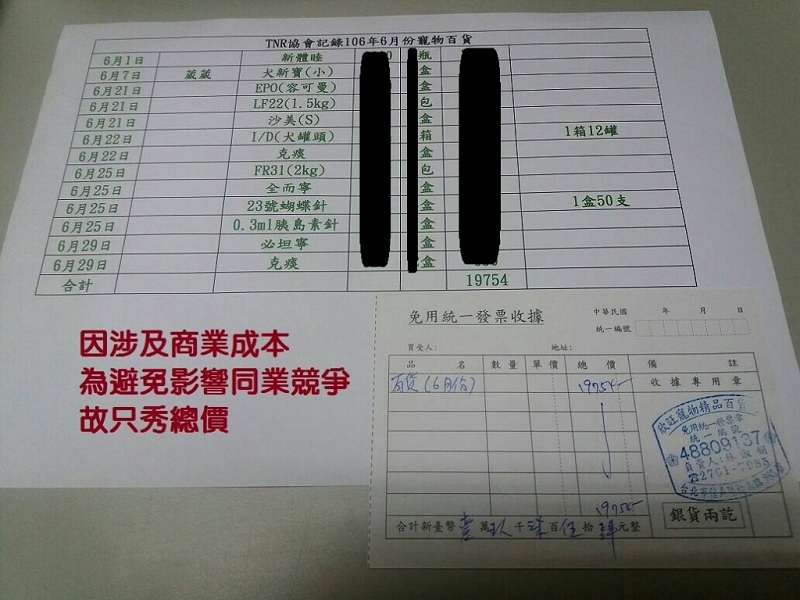 TNR協會記錄106年6月份寵物百貨
6月1日 新體睦 瓶
6月7日 葳葳 犬新寶(小) 盒
6月21日 EPO(容可曼) 盒
6月21日 LF22(1.5kg) 包
6月21日 沙美(S) 盒
6月22日 I/D(犬罐頭) 箱 1箱12罐
6月22日 克痰 盒
6月25日 FR31(2kg) 包
6月25日 全而寧 盒
6月25日 23號蝴蝶針 盒 1盒50支
6月25日 0.3ml胰島素針 盒
6月29日 必坦寧 盒
6月29日 克痰 盒
合計 19754
因涉及商業成本
為避免影響同業競爭
故只秀總價
免用統一發票收據
中華民國 年 月 日
統一編號
買受人: 地址:
品名 數量 單價 總價 備註
百貨(6月份) 19754 收據專用章
寵物精品百貨
免用統一發票章
統一編號
48809137
負責人:林
☎2761-7985
台北市
19754
合計新臺幣壹萬玖千柒百伍拾肆元整
銀貨兩訖